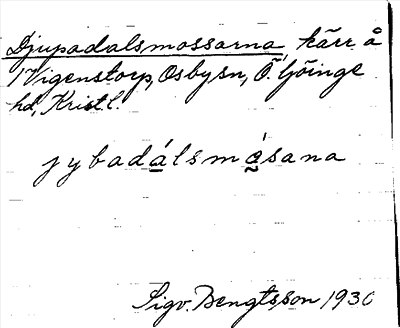 Djupadalsmossarna kärr å
1 Vigenstorp, Osby sn, Ö. Göinge
hd, Krist. l.
jybadálsmósana
Sigv. Bengtsson 1930